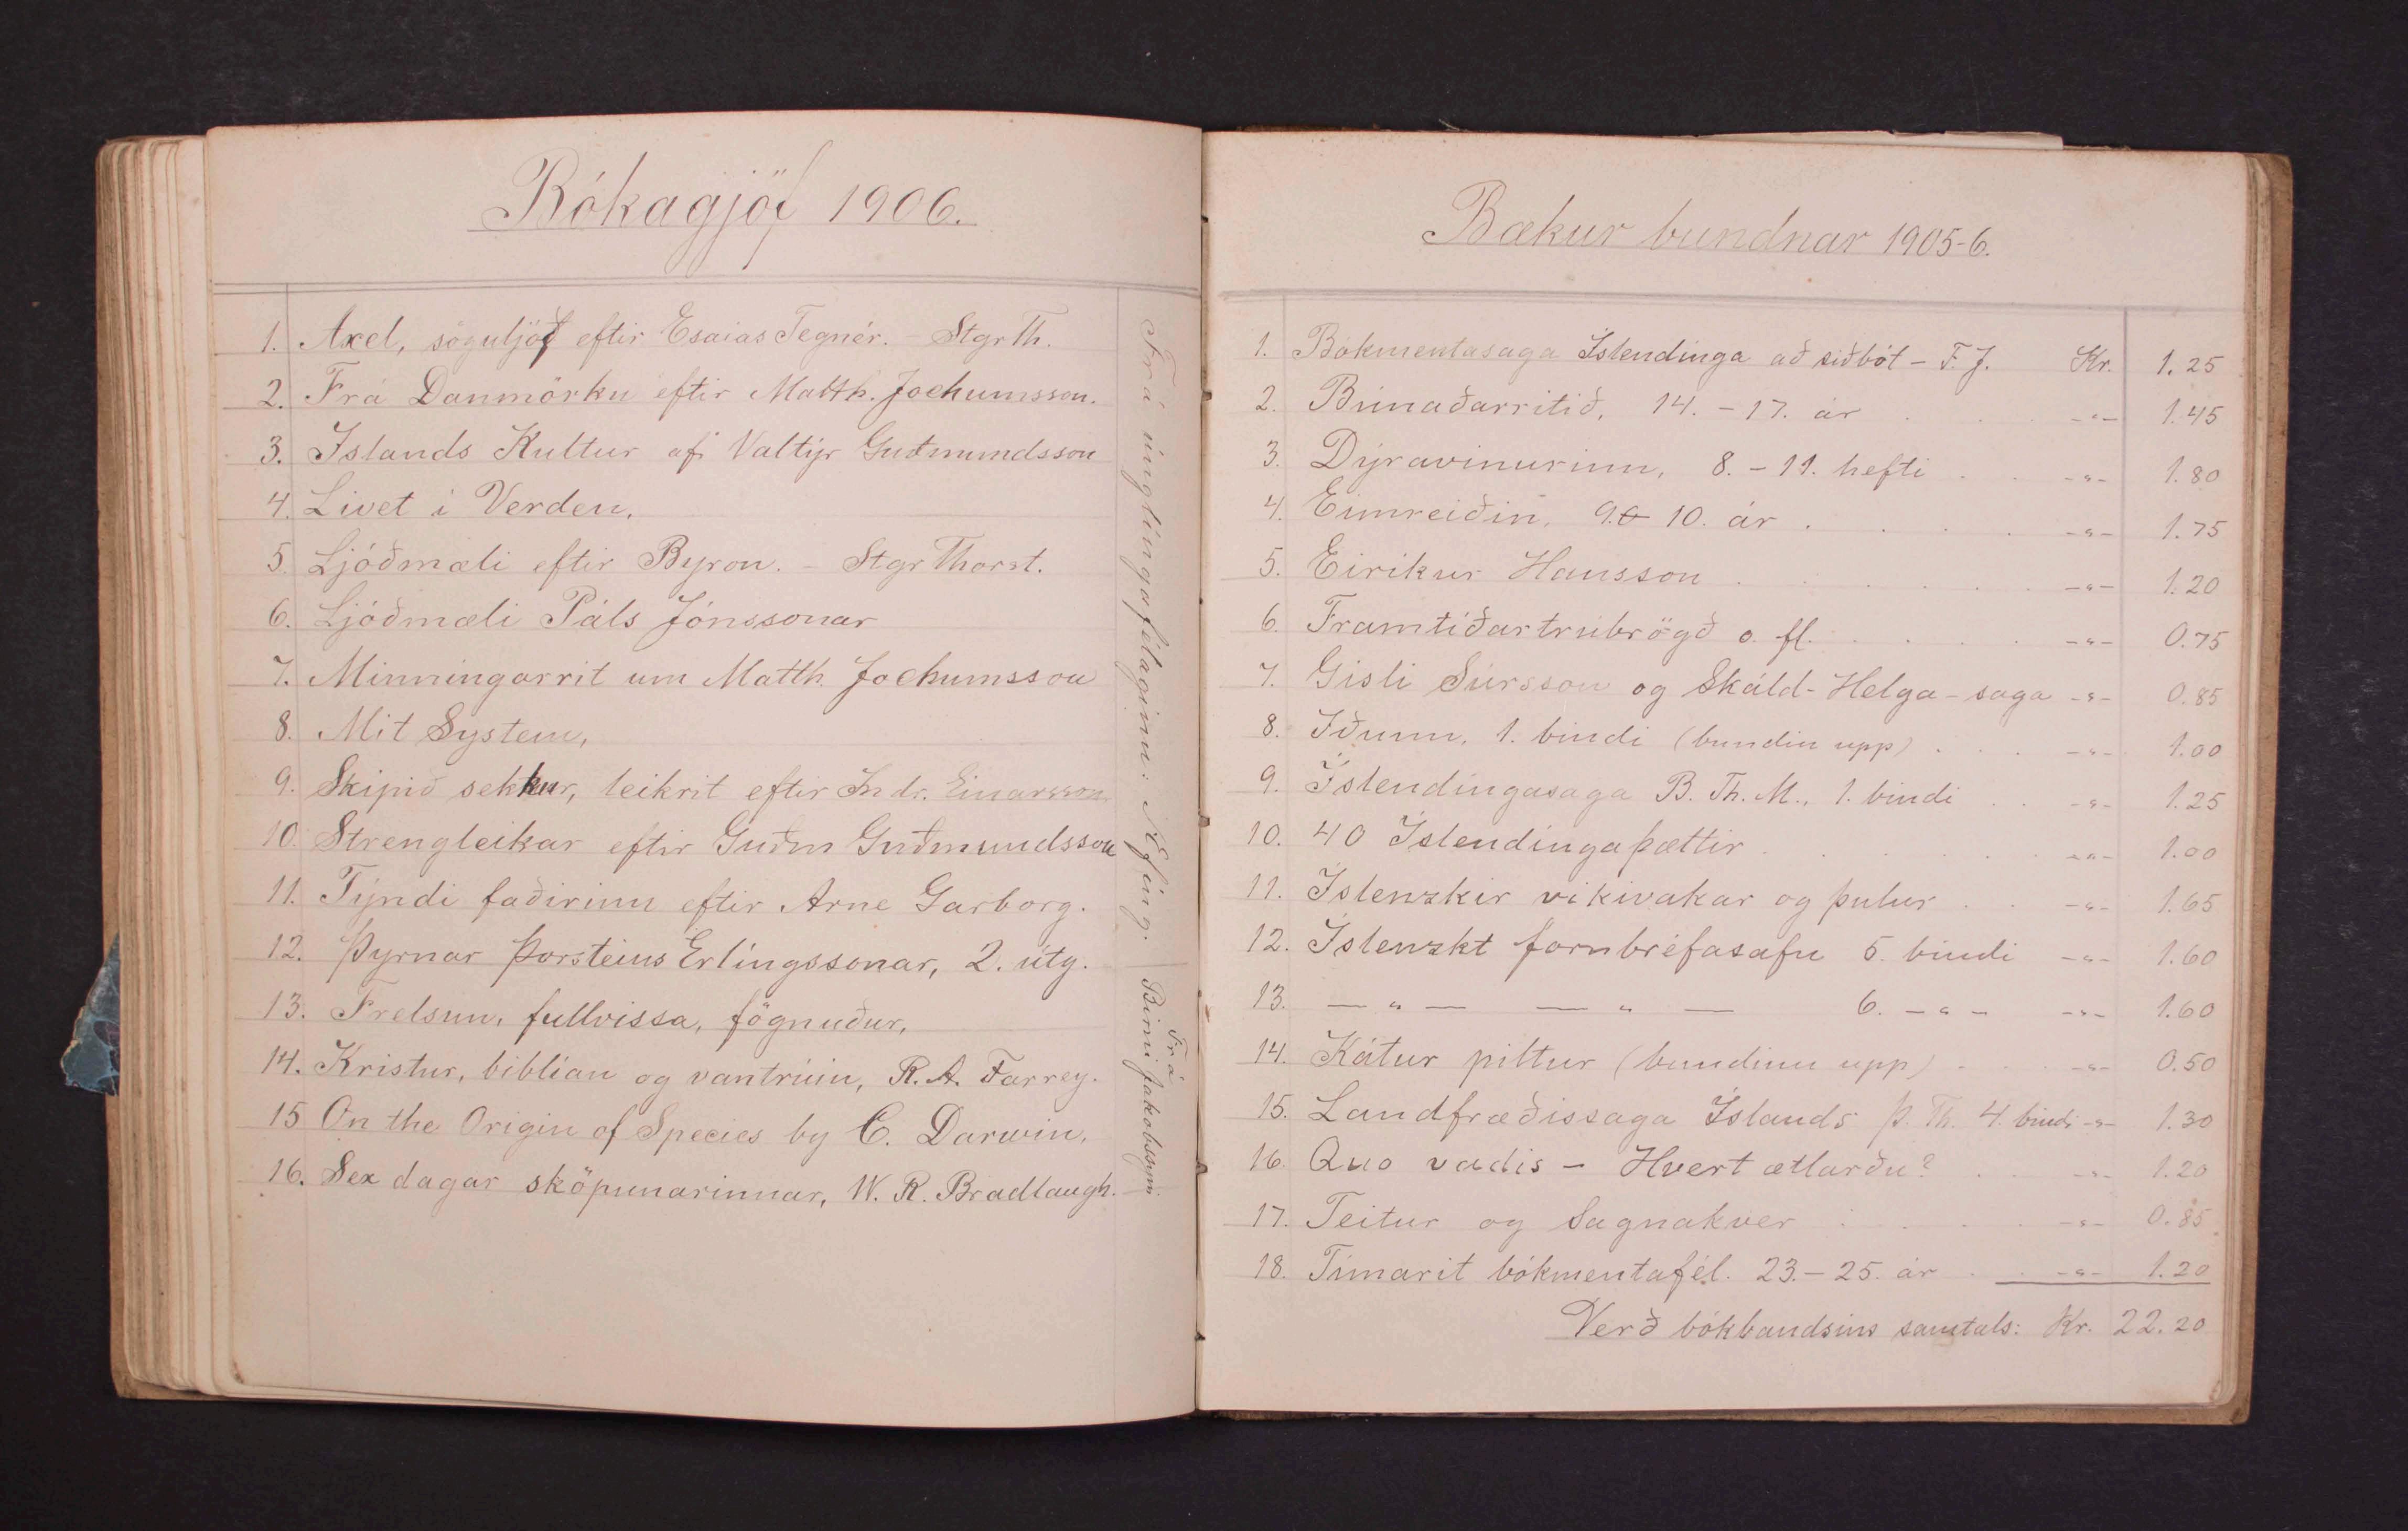 Bókagjöf 1906.
1. Axel, söguljóð eftir Esaias Tegnér. - Stgr Th.
2. Frá Danmörku eftir Matth. Jochumsson.
3. Islands Kultur af Valtýr Guðmundsson
4. Livet i Verden.
5. Ljóðmæli eftir Byron. - Stgr Thorst.
6. Ljóðmæli Páls Jónssonar
7. Minningarrit um Matth. Jochumsson
8. Mit System,
9. Skipið sekkur, leikrit eftir Indr. Einarsson
10. Strengleikar eftir Guðm Guðmundsson
11. Týndi faðirinn eftir Arne Garborg.
12. Þyrnar Þorsteins Erlíngssonar, 2. útg.
13. Frelsun, fullvissa, fögnuður,
14. Kristur, biblían og vantrúin, R. A. Farrey.
15 On the Origin of Species by C. Darwin,
16. Sex dagar sköpunarinnar, W. R. Bradlaugh.
Frá únglíngafélaginu: Æfing.
Frá
Birni Jakobssyni
Bækur bundnar 1905-6.
1. Bókmentasaga Íslendinga að siðbót - F. J. Kr. 1.25
2. Búnaðarritið, 14. - 17. ár . . . -"- 1.45
3. Dýravinurinn, 8. - 11. hefti . . -"- 1.80
4. Eimreiðin, 9. 10. ár . . . . -"- 1.75
5. Eiríkur Hansson . . . . . . -"- 1.20
6. Framtíðartrúbrögð o. fl. . . . . -"- 0.75
7. Gísli Súrsson og Skáld-Helga-saga -"- 0.85
8. Iðunn, 1. bindi (bundin upp) . . . -"- 1.00
9. Íslendíngasaga B. Th. M., 1. bindi . . -"- 1.25
10. 40 Íslendíngaþættir . . . . . . -"- 1.00
11. Íslenzkir vikivakar og þulur . . -"- 1.65
12. Íslenzkt fornbréfasafn 5. bindi -"- 1.60
13. — " — — " — 6. - " - -"- 1.60
14. Kátur piltur (bundinn upp) . . . -"- 0.50
15. Landfræðissaga Íslands Þ. Th. 4. bindi -"- 1.30
16. Quo vadis - Hvert ætlarðu? . . -"- 1.20
17. Teitur og Sagnakver . . . . -"- 0.85
18. Tímarit bókmentafél. 23. - 25. ár . . -"- 1.20
Verð bókbandsins samtals: Kr. 22.20